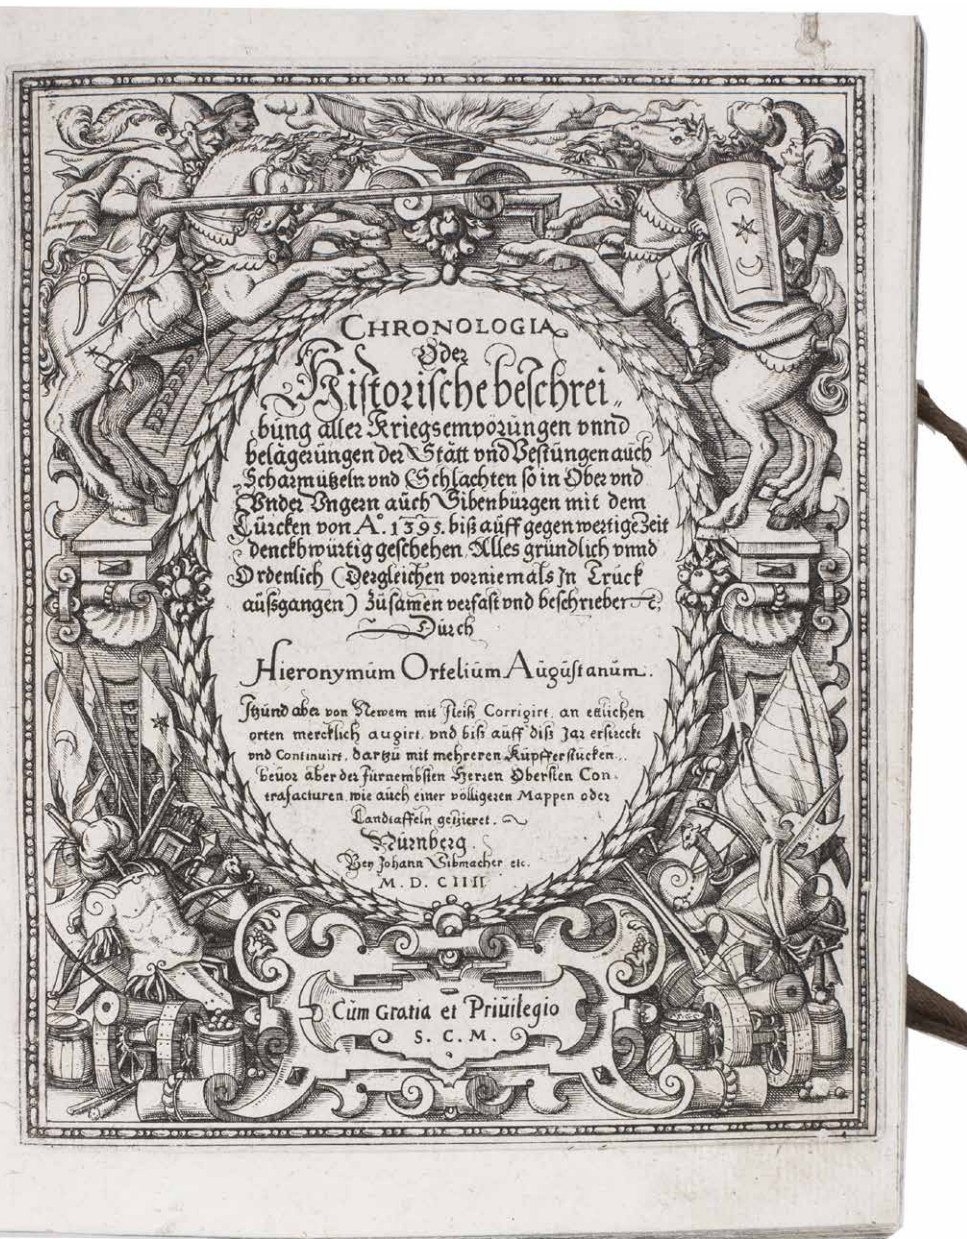 CHRONOLOGIA
Oder
Historische beschrei„
bung aller Kriegsemporungen vnnd
belägerungen der Stätt vnd Vestungen auch
Scharmützeln vnd Schlachten so in Ober vnd
Vnder Vngern auch Sibenbürgen mit dem
Türcken von A°. 1395. biß auff gegenwertige Zeit
denckhwürtig geschehen, Alles gründlich vnnd
Ordenlich (Dergleichen vorniemals In Truck
außgangen) Zusamen verfast vnd beschrieben
Durch
Hieronymum Ortelium Augustanum.
Itzund aber von Newem mit fleiß Corrigirt, an etlichen
orten mercklich augirt, vnd biß auff diß Jar erstreckt
vnd Continuirt, dartzu mit mehreren Kupfferstucken,
beuor aber der fürnembsten Herren Obersten Con-
trafacturen, wie auch einer völligeren Mappen oder
Landtaffeln geziieret.
Nürnberg.
Bey Johann Sibmacher etc.
M. D. C IIII
Cum Gratia et Priuilegio
S. C. M.